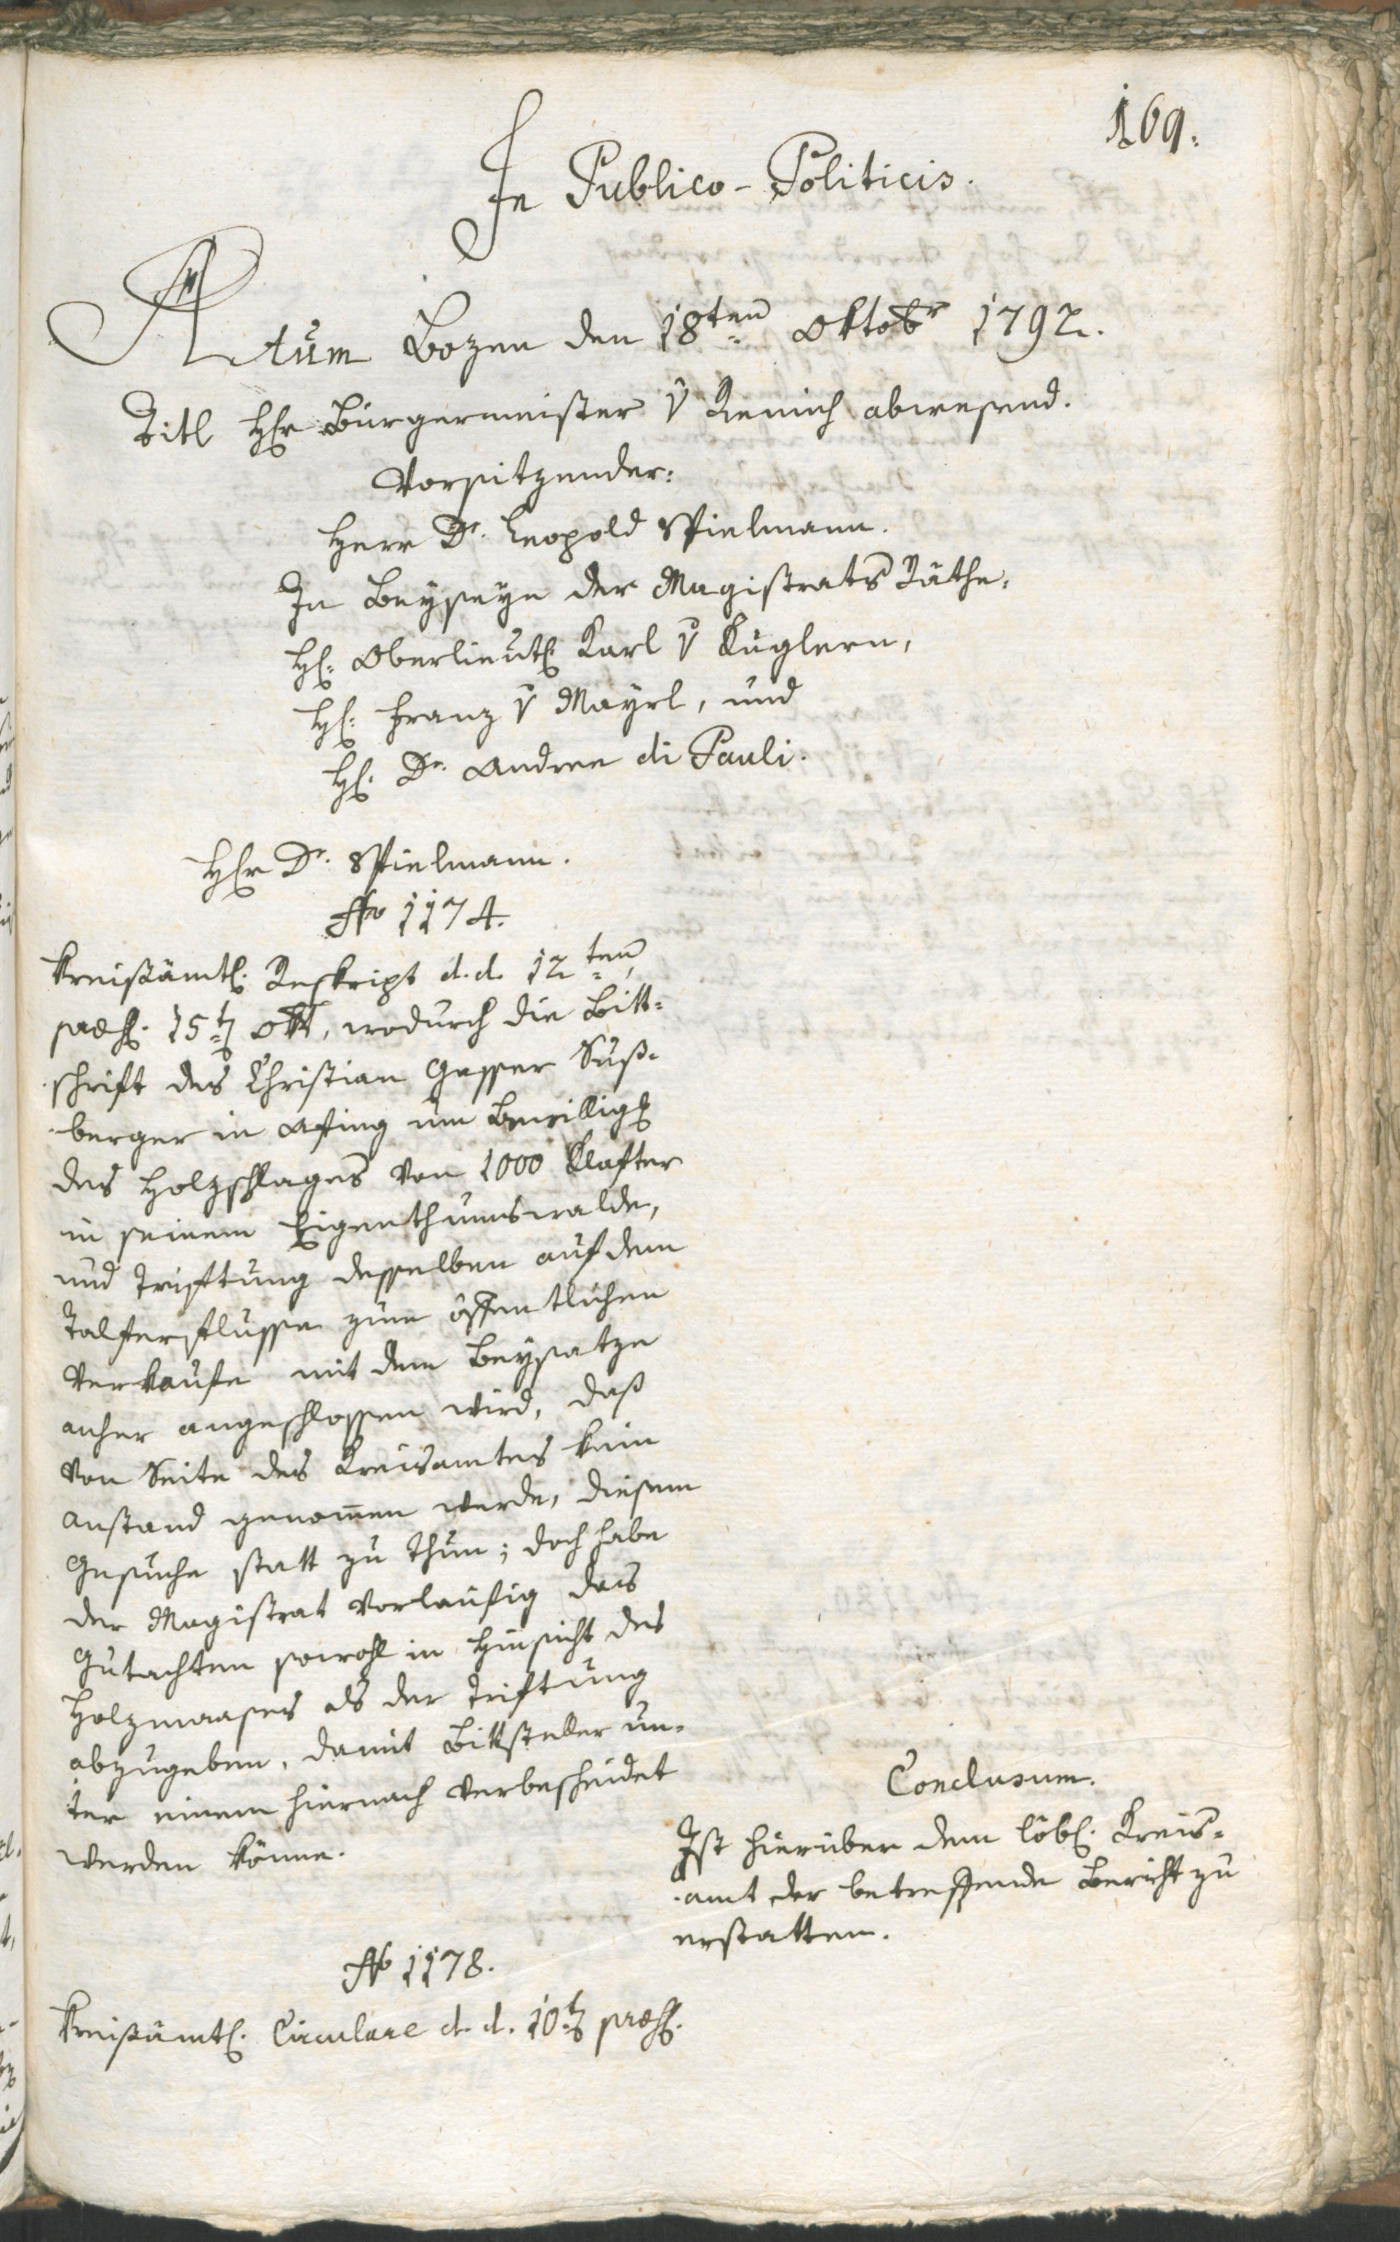 169.
In Publico-Politicis.
Actum Bozen den 18ten Oktobr 1792.
Titl Hhr Bürgermeister v Remich abwesend.
Vorsitzender:
Herr Dr. Leopold Spielmann.
In Beyseyn der Magistrats Räthe,
H: Oberlieut: Karl v Kuglern,
H: Franz v Mayrl, und
H: Dr. Andree di Pauli.
Hhr Dr. Spielmann.
No 1174.
Kreißämtl: Reskript d. d. 12ten,
praes: 15t Okt, wodurch die Bitt-
schrift des Christian Gasser Suß-
berger in Afing um Bewillig
des Holzschlages von 1000 Klafter
in seinem Eigenthumswalde,
und Triftung desselben auf dem
Talferflusse zum öffentlichen
Verkaufe mit dem Beysatze
anher angeschlossen wird, daß
von Seite des Kreisamtes kein
Anstand genommen werde, diesem
Gesuche statt zu thun; doch habe
der Magistrat vorläufig das
Gutachten sowohl in Hinsicht des
Holzmaases als der Triftung
abzugeben, damit Bittsteller un-
ter einem hiernach verbescheidet
werden könne.
Conclusum.
Ist hierüber dem löbl: Kreis-
amt der betreffende Bericht zu
erstatten.
No 1178.
Kreißämtl: Circulare d. d. 10t praes: